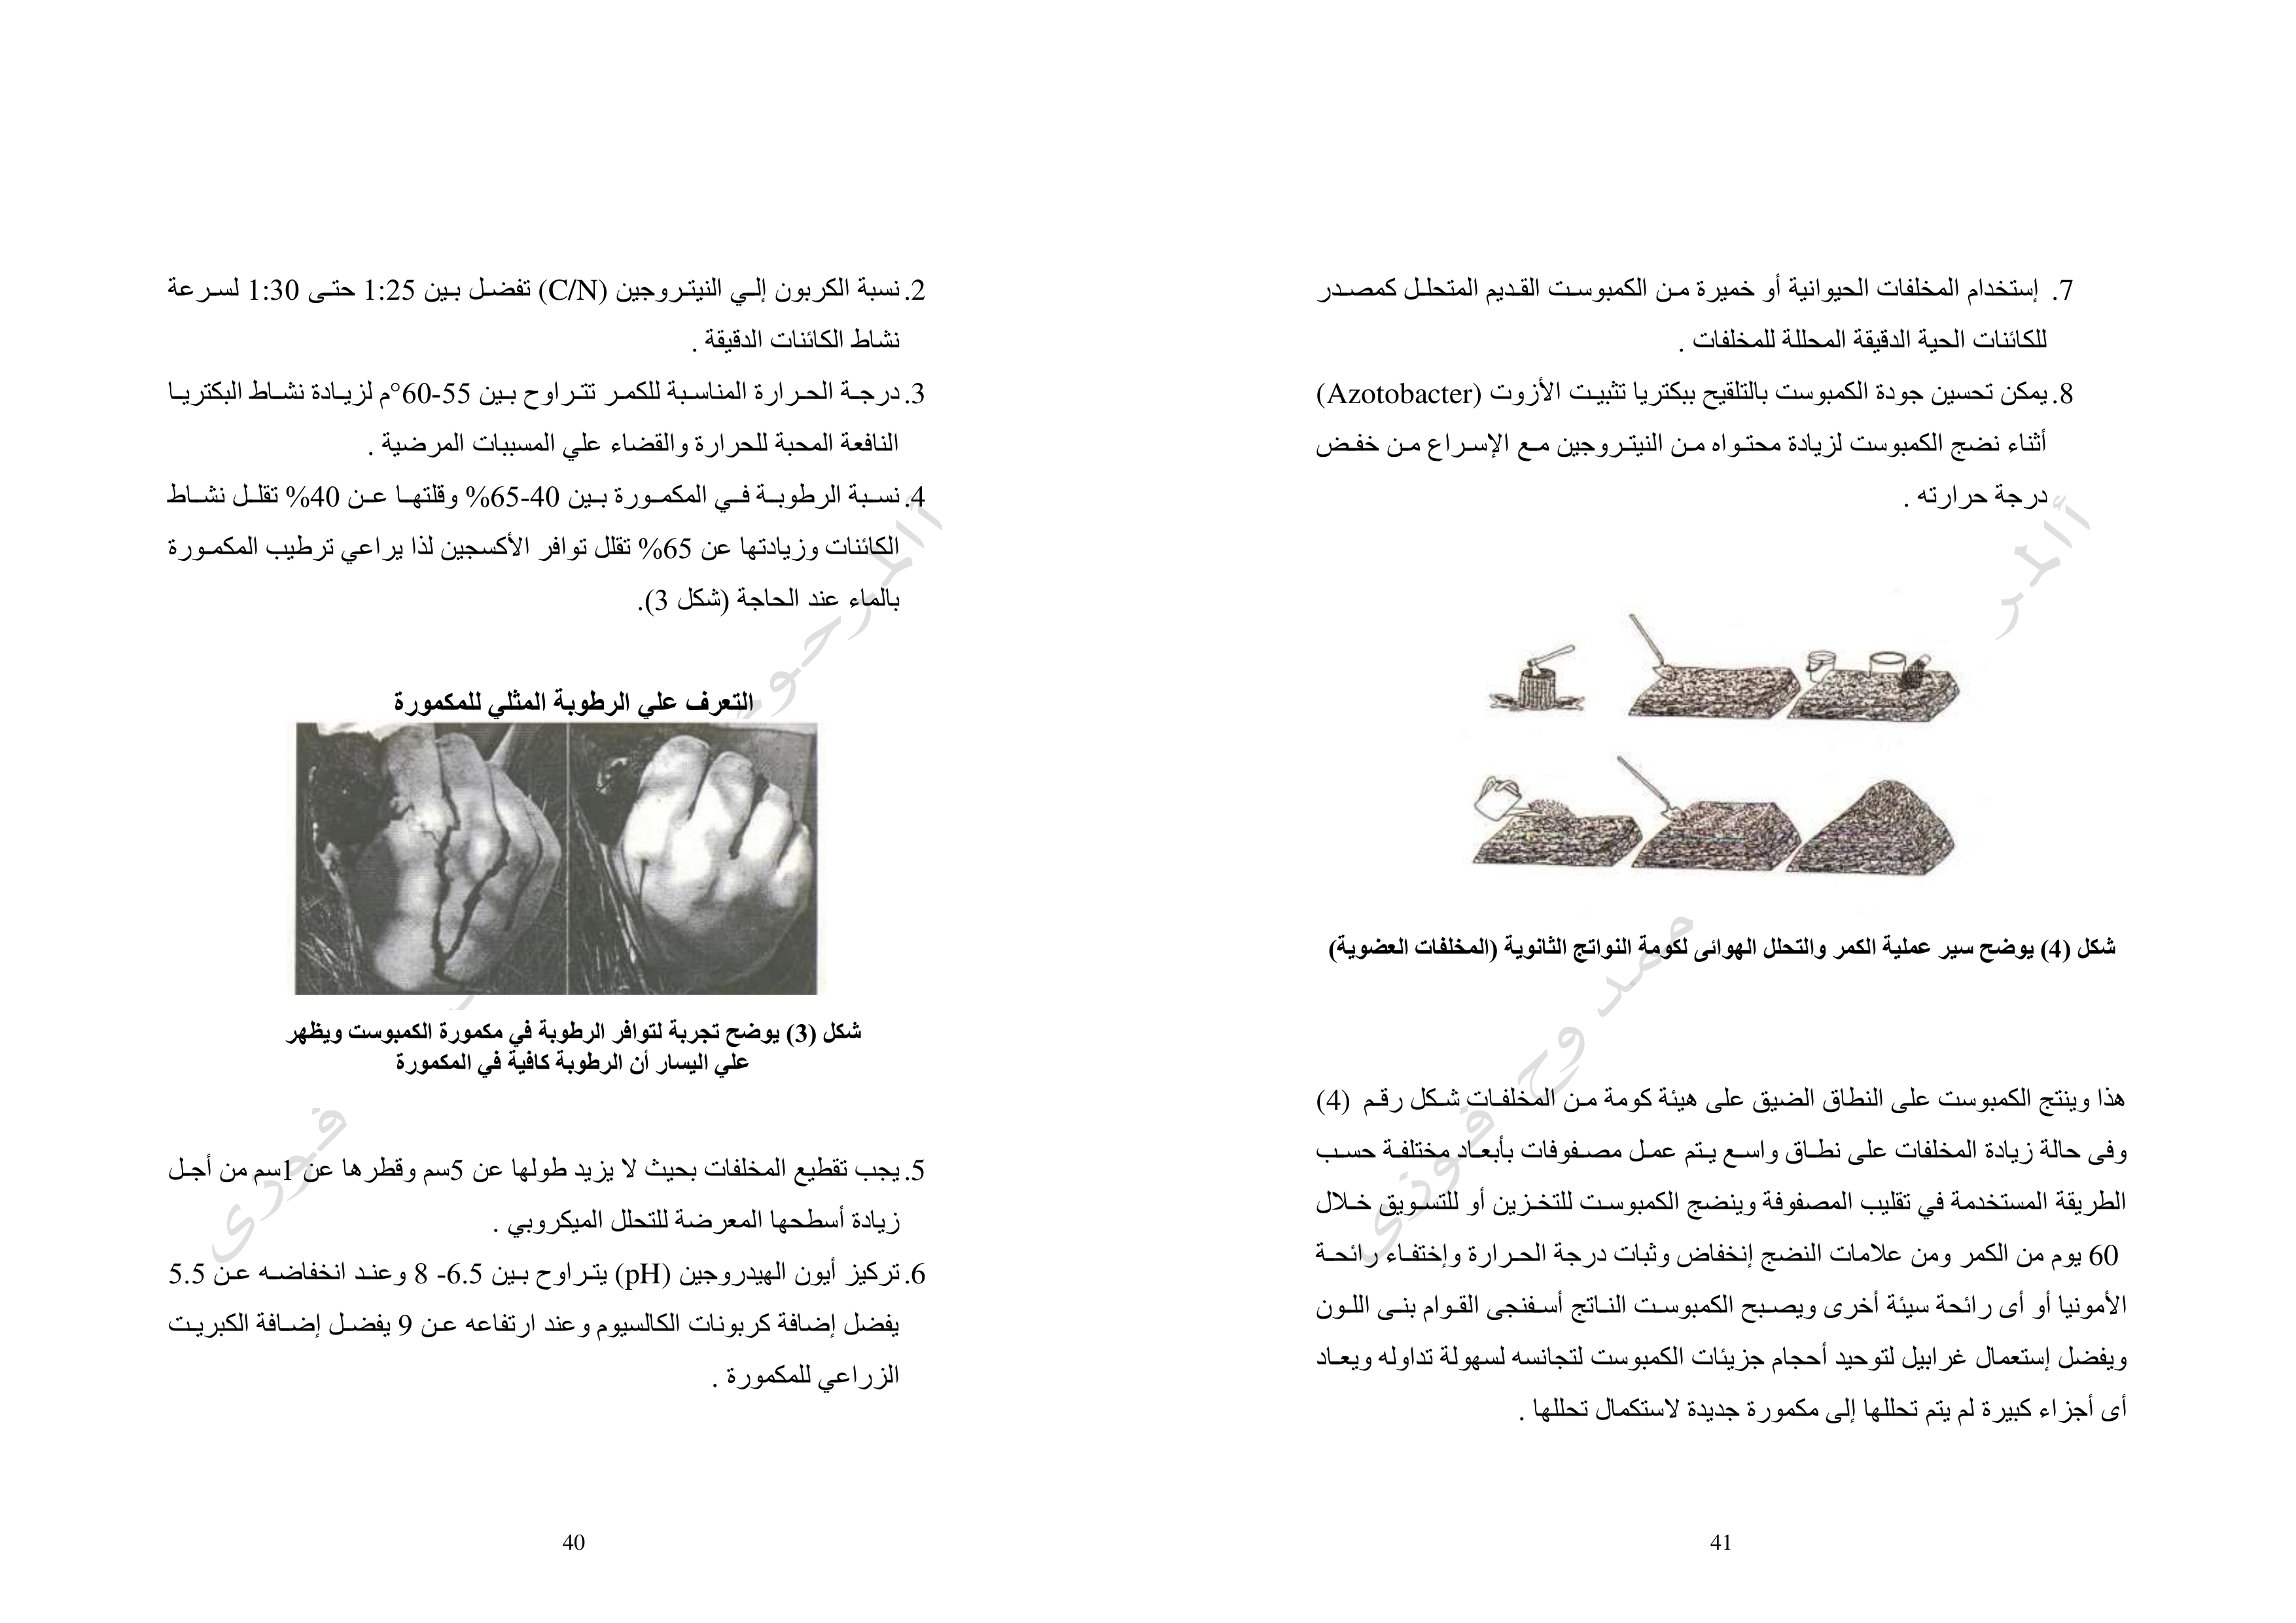 2. نسبة الكربون إلي النيتروجين (C/N) تفضل بين 1:25 حتى 1:30 لسرعة
نشاط الكائنات الدقيقة .
3. درجة الحرارة المناسبة للكمر تتراوح بين 55-60°م لزيادة نشاط البكتريا
النافعة المحبة للحرارة والقضاء علي المسببات المرضية .
4. نسبة الرطوبة في المكمورة بين 40-65% وقلتها عن 40% تقلل نشاط
الكائنات وزيادتها عن 65% تقلل توافر الأكسجين لذا يراعي ترطيب المكمورة
بالماء عند الحاجة (شكل 3).
التعرف علي الرطوبة المثلي للمكمورة
شكل (3) يوضح تجربة لتوافر الرطوبة في مكمورة الكمبوست ويظهر
علي اليسار أن الرطوبة كافية في المكمورة
5. يجب تقطيع المخلفات بحيث لا يزيد طولها عن 5سم وقطرها عن 1سم من أجل
زيادة أسطحها المعرضة للتحلل الميكروبي .
6. تركيز أيون الهيدروجين (pH) يتراوح بين 6.5- 8 وعند انخفاضه عن 5.5
يفضل إضافة كربونات الكالسيوم وعند ارتفاعه عن 9 يفضل إضافة الكبريت
الزراعي للمكمورة .
40
7. إستخدام المخلفات الحيوانية أو خميرة من الكمبوست القديم المتحلل كمصدر
للكائنات الحية الدقيقة المحللة للمخلفات .
8. يمكن تحسين جودة الكمبوست بالتلقيح ببكتريا تثبيت الأزوت (Azotobacter)
أثناء نضج الكمبوست لزيادة محتواه من النيتروجين مع الإسراع من خفض
درجة حرارته .
شكل (4) يوضح سير عملية الكمر والتحلل الهوائى لكومة النواتج الثانوية (المخلفات العضوية)
هذا وينتج الكمبوست على النطاق الضيق على هيئة كومة من المخلفات شكل رقم (4)
وفى حالة زيادة المخلفات على نطاق واسع يتم عمل مصفوفات بأبعاد مختلفة حسب
الطريقة المستخدمة في تقليب المصفوفة وينضج الكمبوست للتخزين أو للتسويق خلال
60 يوم من الكمر ومن علامات النضج إنخفاض وثبات درجة الحرارة وإختفاء رائحة
الأمونيا أو أى رائحة سيئة أخرى ويصبح الكمبوست الناتج أسفنجى القوام بنى اللون
ويفضل إستعمال غرابيل لتوحيد أحجام جزيئات الكمبوست لتجانسه لسهولة تداوله ويعاد
أى أجزاء كبيرة لم يتم تحللها إلى مكمورة جديدة لاستكمال تحللها .
41